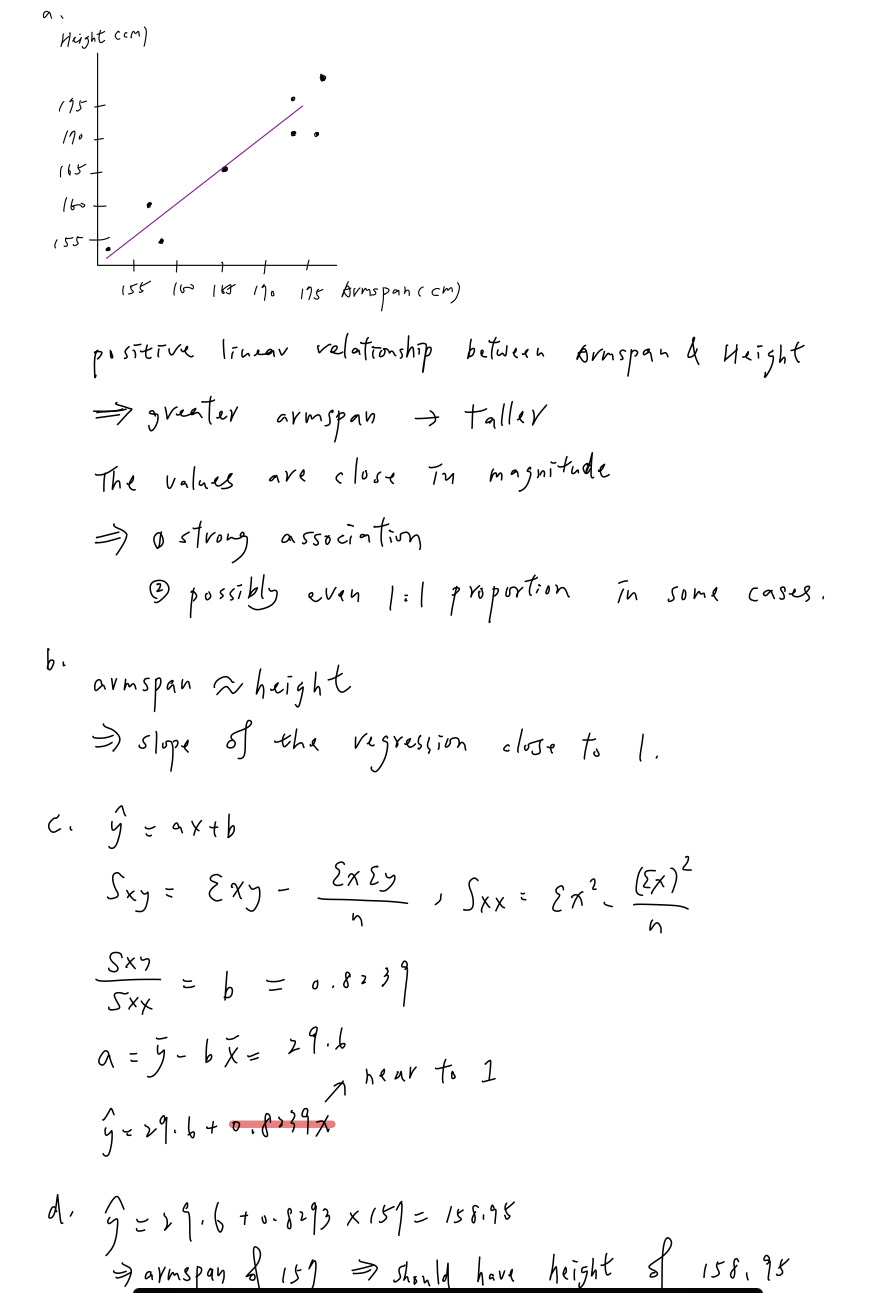 a.
Height (cm)
175
170
165
160
155
155 160 165 170 175 Armspan (cm)
positive linear relationship between Armspan & Height
⇒ greater armspan → taller
The values are close in magnitude
⇒ ① strong association
② possibly even 1:1 proportion in some cases.
b.
armspan ≈ height
⇒ slope of the regression close to 1.
c. ŷ = ax+b
Sxy = Σxy - ΣxΣy/n , Sxx = Σx² - (Σx)²/n
Sxy/Sxx = b = 0.8239
a = ȳ - b x̄ = 29.6
↗ near to 1
ŷ = 29.6 + 0.8239x
d. ŷ = 29.6 + 0.8293 × 157 = 158.95
⇒ armspan of 157 ⇒ should have height of 158.95